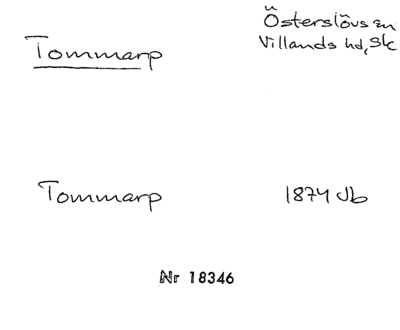 Tommarp
Österslövs sn
Villands hd, Sk
Tommarp
1874 Jb
Nr 18346